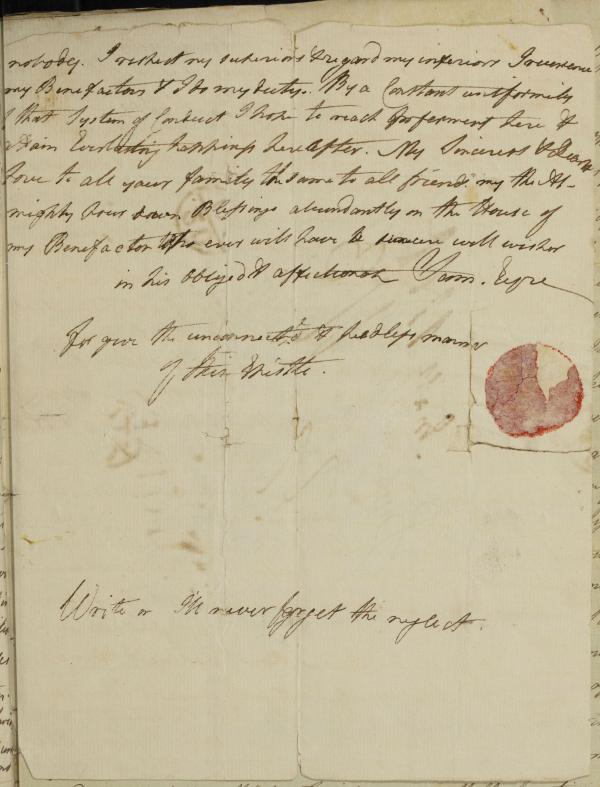 nobody. I respect my superiors & regard my inferiors I reverence
my Benefactors & I do my duty. By a Constant uniformity
of that System of Conduct I hope to reach Preferment here &
attain Everlasting happiness hereafter. My Sincerest & Dearest
Love to all your family the same to all friends may the Al-
mighty pour down Blessings abundantly on the House of
my Benefactor Who ever will have a sincere well wisher
in his obliged & affectionate Sam. Eyre
forgive the unconnected & headless manner
of this Epistle.
Write or I'll never forget the neglect.